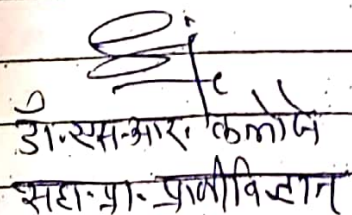 डॉ. एस. आर. कनोजे
सहा. प्रा. प्राणीविज्ञान